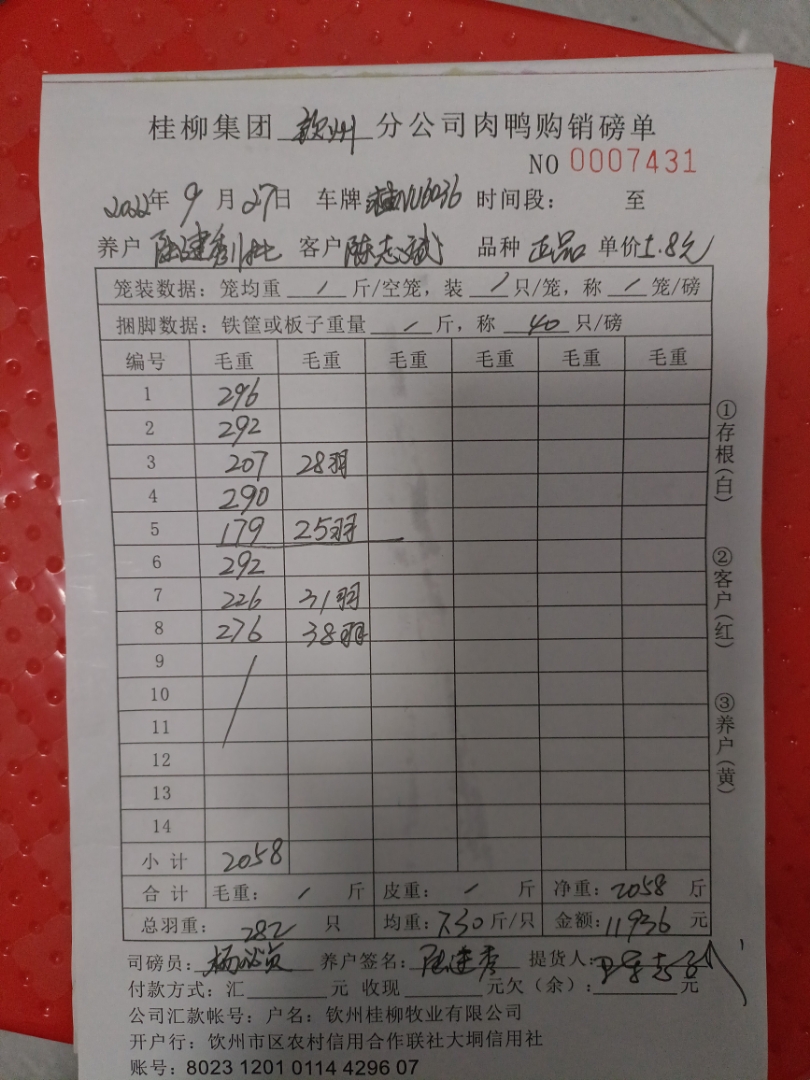 桂柳集团 钦州 分公司肉鸭购销磅单
NO 0007431
2022年 9 月 27日 车牌 桂N06036 时间段： 至
养户 客户 陈志斌 品种 正品 单价5.8元
笼装数据：笼均重 / 斤/空笼，装 / 只/笼，称 / 笼/磅
捆脚数据：铁筐或板子重量 / 斤，称 40 只/磅
编号 毛重 毛重 毛重 毛重 毛重 毛重
1 296
2 292
3 207 28羽
4 290
5 179 25羽
6 292
7 226 31羽
8 276 38羽
9
10
11
12
13
14
小计 2058
合计 毛重： / 斤 皮重： / 斤 净重：2058 斤
总羽重： 282 只 均重：7.30 斤/只 金额：11936 元
司磅员： 养户签名： 提货人：
付款方式：汇 元 收现 元欠（余）： 元
公司汇款帐号：户名：钦州桂柳牧业有限公司
开户行：钦州市区农村信用合作联社大垌信用社
账号：8023 1201 0114 4296 07
①存根（白）
②客户（红）
③养户（黄）